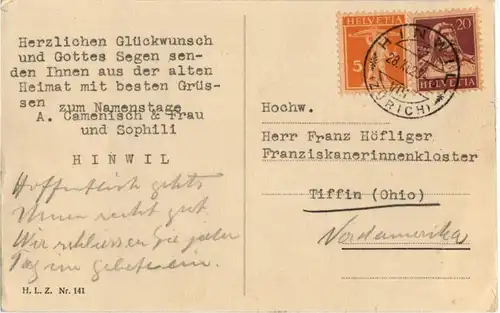 Herzlichen Glückwunsch
und Gottes Segen sen-
den Ihnen aus der alten
Heimat mit besten Grüs-
sen zum Namenstage
A. Camenisch & Frau
und Sophili
HINWIL
Hoffentlich gehts
Ihnen recht gut.
Wir schliessen Sie jeden
Tag ins Gebet ein.
H. L. Z. Nr. 141
HELVETIA
5
20
HELVETIA
HINWIL
(ZÜRICH)
Hochw.
Herr Franz Höfliger
Franziskanerinnenkloster
Tiffin (Ohio)
Nordamerika